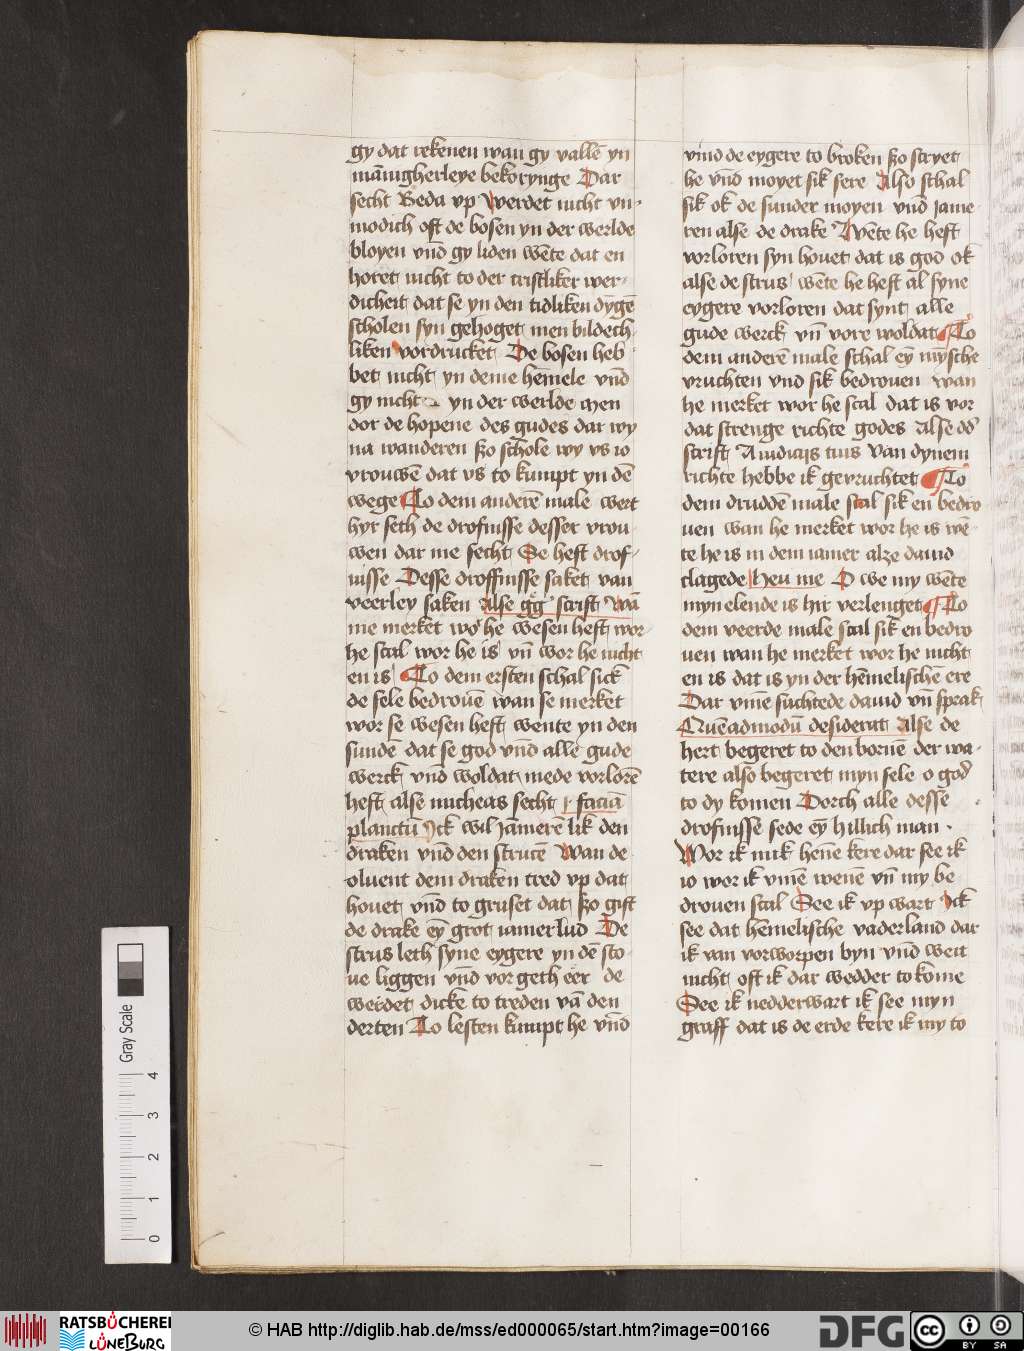 gy dat rekenen wan gy vallē yn
mānigherleye bekorynge Dar
secht Beda vp Werdet nicht vn-
modich oft de bosen yn der werlde
bloyen vn̄d gy liden wēte dat en
horet nicht to der cristliker wer-
dicheit dat se yn den tidliken dyge
scholen syn gehoget men bildech
liken vordrucket De bosen heb
bet nicht yn deme hemele vn̄d
gy nicht yn der werlde Men
dor de hopene des gudes dar wy
na wanderen szo schole wy vs io
vrouwē dat vs to kumpt yn dē
wege To dem anderē male wert
hyr seth de drofnisse desser vrou
wen dar me secht Se heft drof-
nisse Desse droffnisse saket van
veerley saken Alse gg scrift Wā
me merket wor he wesen heft wor
he scal wor he is vn̄ wor he nicht
en is To dem ersten schal sick
de sele bedrouē wan se merket
wor se wesen heft wente yn den
sunde dat se god vnd alle gude
werck vn̄d woldat mede vorlorē
heft alse micheas secht faciā
planctū Ick wil jamerē lik den
draken vn̄d den strucē Wan de
oluent dem draken tred vp dat
houet vn̄d to gruset dat szo gift
de drake ey grot iamer lud De
strus leth syne eygere yn dē sto-
ue liggen vn̄d vor geth eer de
werdet dicke to treden vā den
derten To lesten kumpt he vn̄d
vind de eygere to broken szo stryet
he vn̄d moyet sik sere Also schal
sik ok de sunder moyen vn̄d jame-
ren alse de drake Wēte he heft
vorloren syn houet dat is god ok
alse de strus wēte he heft al syne
eygere vorloren dat synt alle
gude werck vn̄ vore woldat To
dem anderē male schal ey mysche
vruchten vnd sik bedrouen wan
he merket wor he scal dat is vor
dat strenge richte godes Alse dd
scrift A iudiciis tuis Van dynem
richte hebbe ik gevruchtet To
dem druddē male scal sik en bedro
uen wan he merket wor he is wē-
te he is in dem iamer alze dauid
clagede Heu me O we my wēte
myn elende is hir verlenget To
dem veerde male scal sik en bedro
uen wan he merket wor he nicht
en is dat is yn der hēmelischē ere
Dar vmē suchtede dauid vn̄ sprak
Quēadmodū desiderat Alse de
hert begeret to den bornē der wa-
tere also begeret myn sele o god
to dy komen Dorch alle desse
drofnisse sede ey hillich man
Wor ik mik henē kere dar see ik
io wor ik vmē wenē vn̄ my be
drouen scal See ik vp wart Ick
see dat hemelische vaderland dar
ik van vorworpen byn vn̄d weit
nicht oft ik dar wedder to kome
See ik nedderwart ik see myn
graff dat is de erde kere ik my to
Gray Scale
4
3
2
1
0
RATSBÜCHEREI
LÜNEBURG
© HAB http://diglib.hab.de/mss/ed000065/start.htm?image=00166
DFG
cc
BY SA